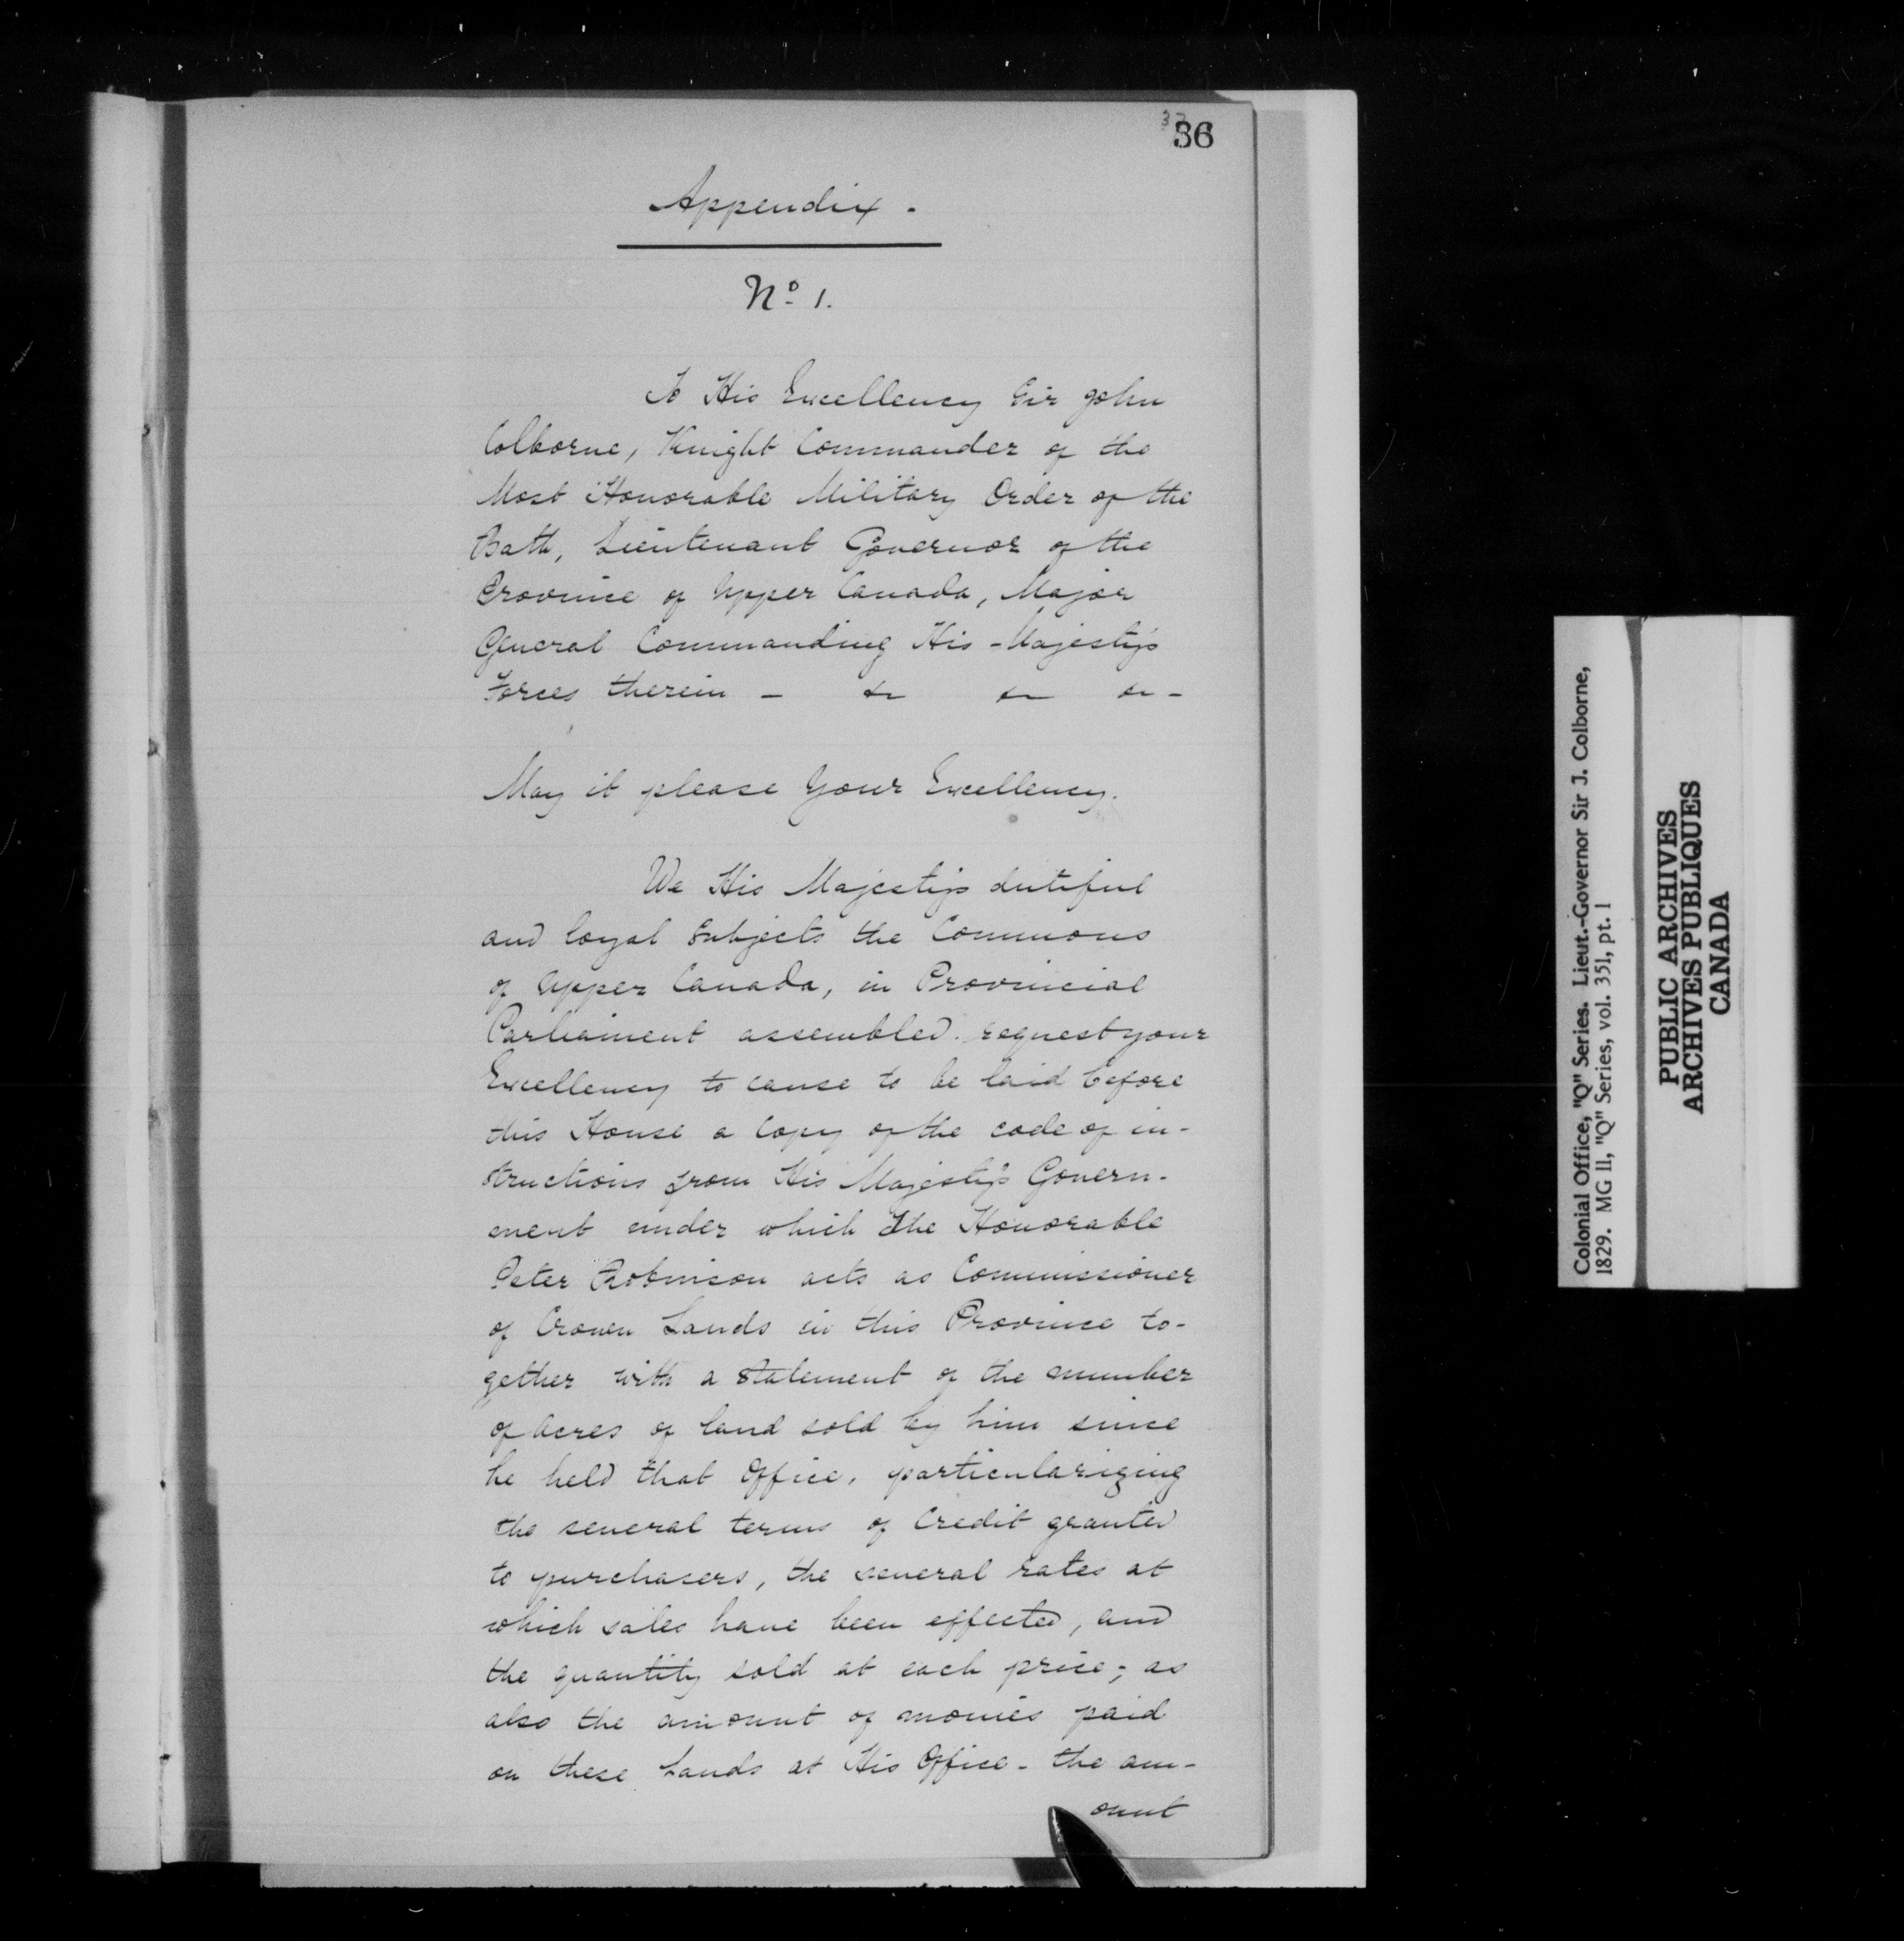 37
36
Appendix.
No 1.
To His Excellency Sir John
Colborne, Knight Commander of the
Most Honorable Military Order of the
Bath, Lieutenant Governor of the
Province of Upper Canada, Major
General Commanding His Majesty's
Forces therein - &c &c &c -
May it please Your Excellency.
We His Majesty's dutiful
and loyal Subjects the Commons
of Upper Canada, in Provincial
Parliament assembled. request your
Excellency to cause to be laid before
this House a Copy of the code of in-
structions from His Majesty's Govern-
ment under which The Honorable
Peter Robinson acts as Commissioner
of Crown Lands in this Province to-
gether with a Statement of the number
of Acres of land sold by him since
he held that Office, particularizing
the several terms of Credit granted
to purchasers, the several rates at
which sales have been effected, and
the quantity sold at each price; as
also the amount of monies paid
on these Lands at His Office - the am-
ount
Colonial Office, "Q" Series. Lieut.-Governor Sir J. Colborne,
1829. MG 11, "Q" Series, vol. 351, pt. 1
PUBLIC ARCHIVES
ARCHIVES PUBLIQUES
CANADA